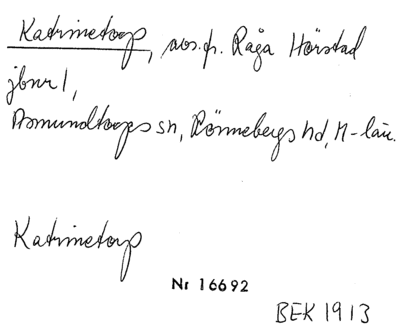 Katrinetorp, avs.fr. Råga Hörstad
jbnr 1,
Asmundtorps sn, Rönnebergs hd, M-län.
Katrinetorp
Nr 16692
BEK 1913